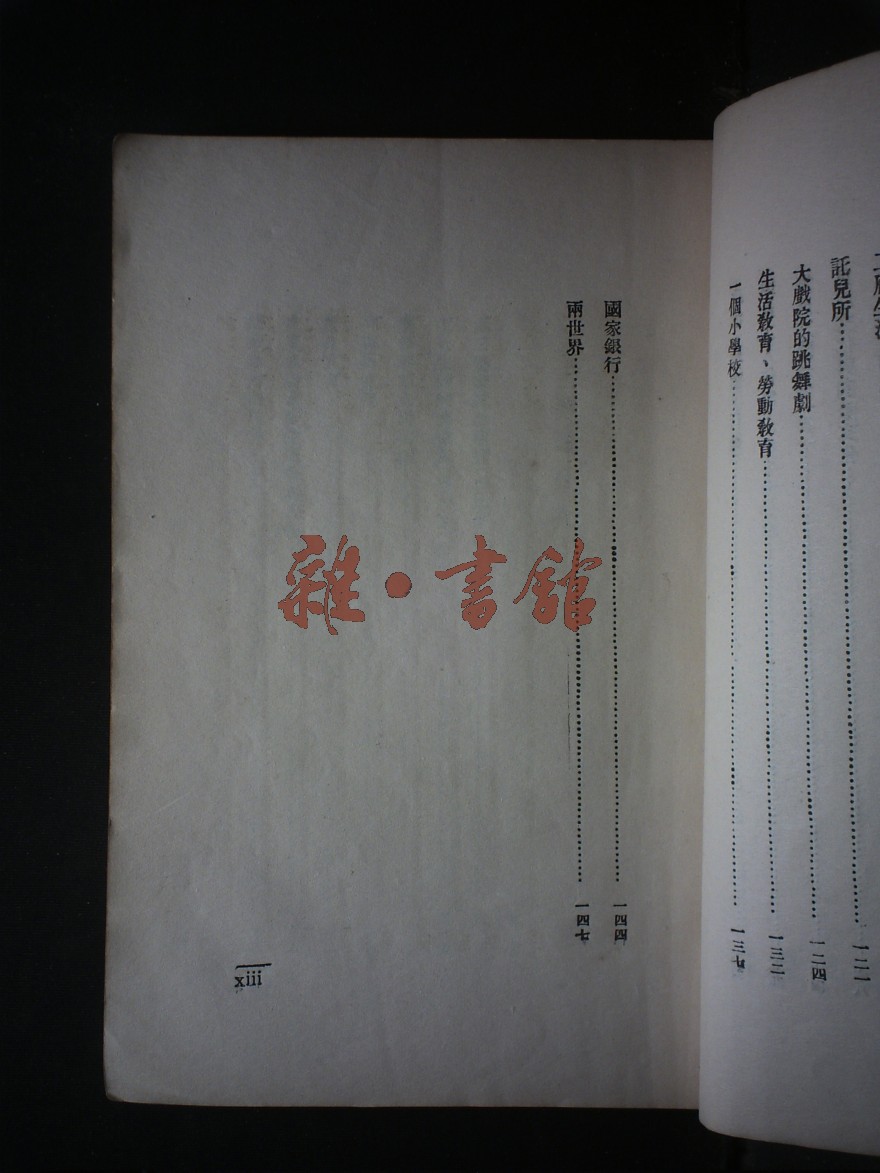 託兒所……一二一
大戲院的跳舞劇……一二四
生活敎育、勞動敎育……一三二
一個小學校……一三七
國家銀行……一四四
兩世界……一四七
xiii
雜·書館